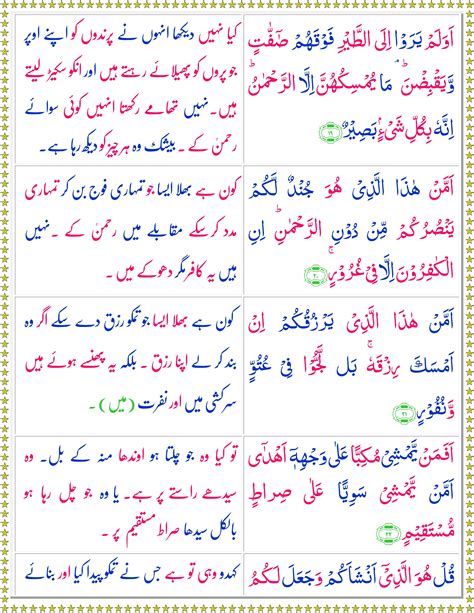 اَوَلَمْ يَرَوْا اِلَى الطَّيْرِ فَوْقَهُمْ صٰٓفّٰتٍ
وَّيَقْبِضْنَ ؕۘ مَا يُمْسِكُهُنَّ اِلَّا الرَّحْمٰنُ ؕ
اِنَّهٗ بِكُلِّ شَىْءٍۢ بَصِيْرٌ ۱۹
کیا نہیں دیکھا انہوں نے پرندوں کو اپنے اوپر
جو پروں کو پھیلائے رہتے ہیں اور انکو سکیڑ لیتے
ہیں۔ نہیں تھامے رکھتا انہیں کوئی سوائے
رحمٰن کے ۔ بیشک وہ ہر چیز کو دیکھ رہا ہے۔
اَمَّنْ هٰذَا الَّذِىْ هُوَ جُنْدٌ لَّكُمْ
يَنْصُرُكُمْ مِّنْ دُوْنِ الرَّحْمٰنِ ؕ اِنِ
الْكٰفِرُوْنَ اِلَّا فِىْ غُرُوْرٍ ۚ ۲۰
کون ہے بھلا ایسا جو تمہاری فوج بن کر تمہاری
مدد کرسکے مقابلے میں رحمٰن کے ۔ نہیں
ہیں یہ کافر مگر دھوکے میں ۔
اَمَّنْ هٰذَا الَّذِىْ يَرْزُقُكُمْ اِنْ
اَمْسَكَ رِزْقَهٗ ۚ بَل لَّجُّوْا فِىْ عُتُوٍّ
وَّنُفُوْرٍ ۲۱
کون ہے بھلا ایسا جو تمکو رزق دے سکے اگر وہ
بند کر لے اپنا رزق ۔ بلکہ یہ پھنسے ہوئے ہیں
سرکشی میں اور نفرت (میں) ۔
اَفَمَنْ يَّمْشِىْ مُكِبًّا عَلٰى وَجْهِهٖۤ اَهْدٰٓى
اَمَّنْ يَّمْشِىْ سَوِيًّا عَلٰى صِرَاطٍ
مُّسْتَقِيْمٍ ۲۲
تو کیا وہ جو چلتا ہو اوندھا منہ کے بل۔ وہ
سیدھے راستے پر ہے۔ یا وہ جو چل رہا ہو
بالکل سیدھا صراط مستقیم پر ۔
قُلْ هُوَ الَّذِىْۤ اَنْشَاَكُمْ وَجَعَلَ لَكُمُ
کہدو وہی تو ہے جس نے تمکو پیدا کیا اور بنائے